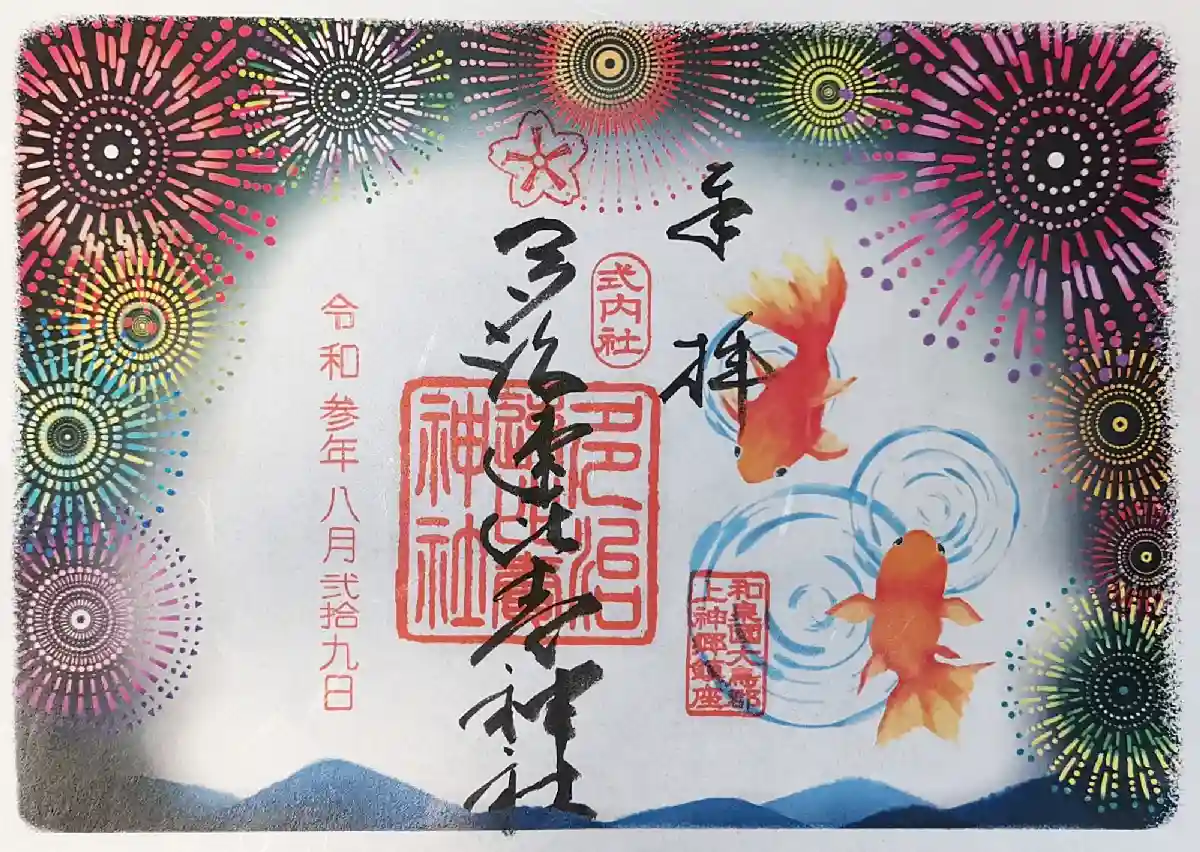 奉拝
和泉國大鳥郡
上神郷鎮座
式内社
多治速比売神社
多治
速比賣
神社
令和参年八月弐拾九日